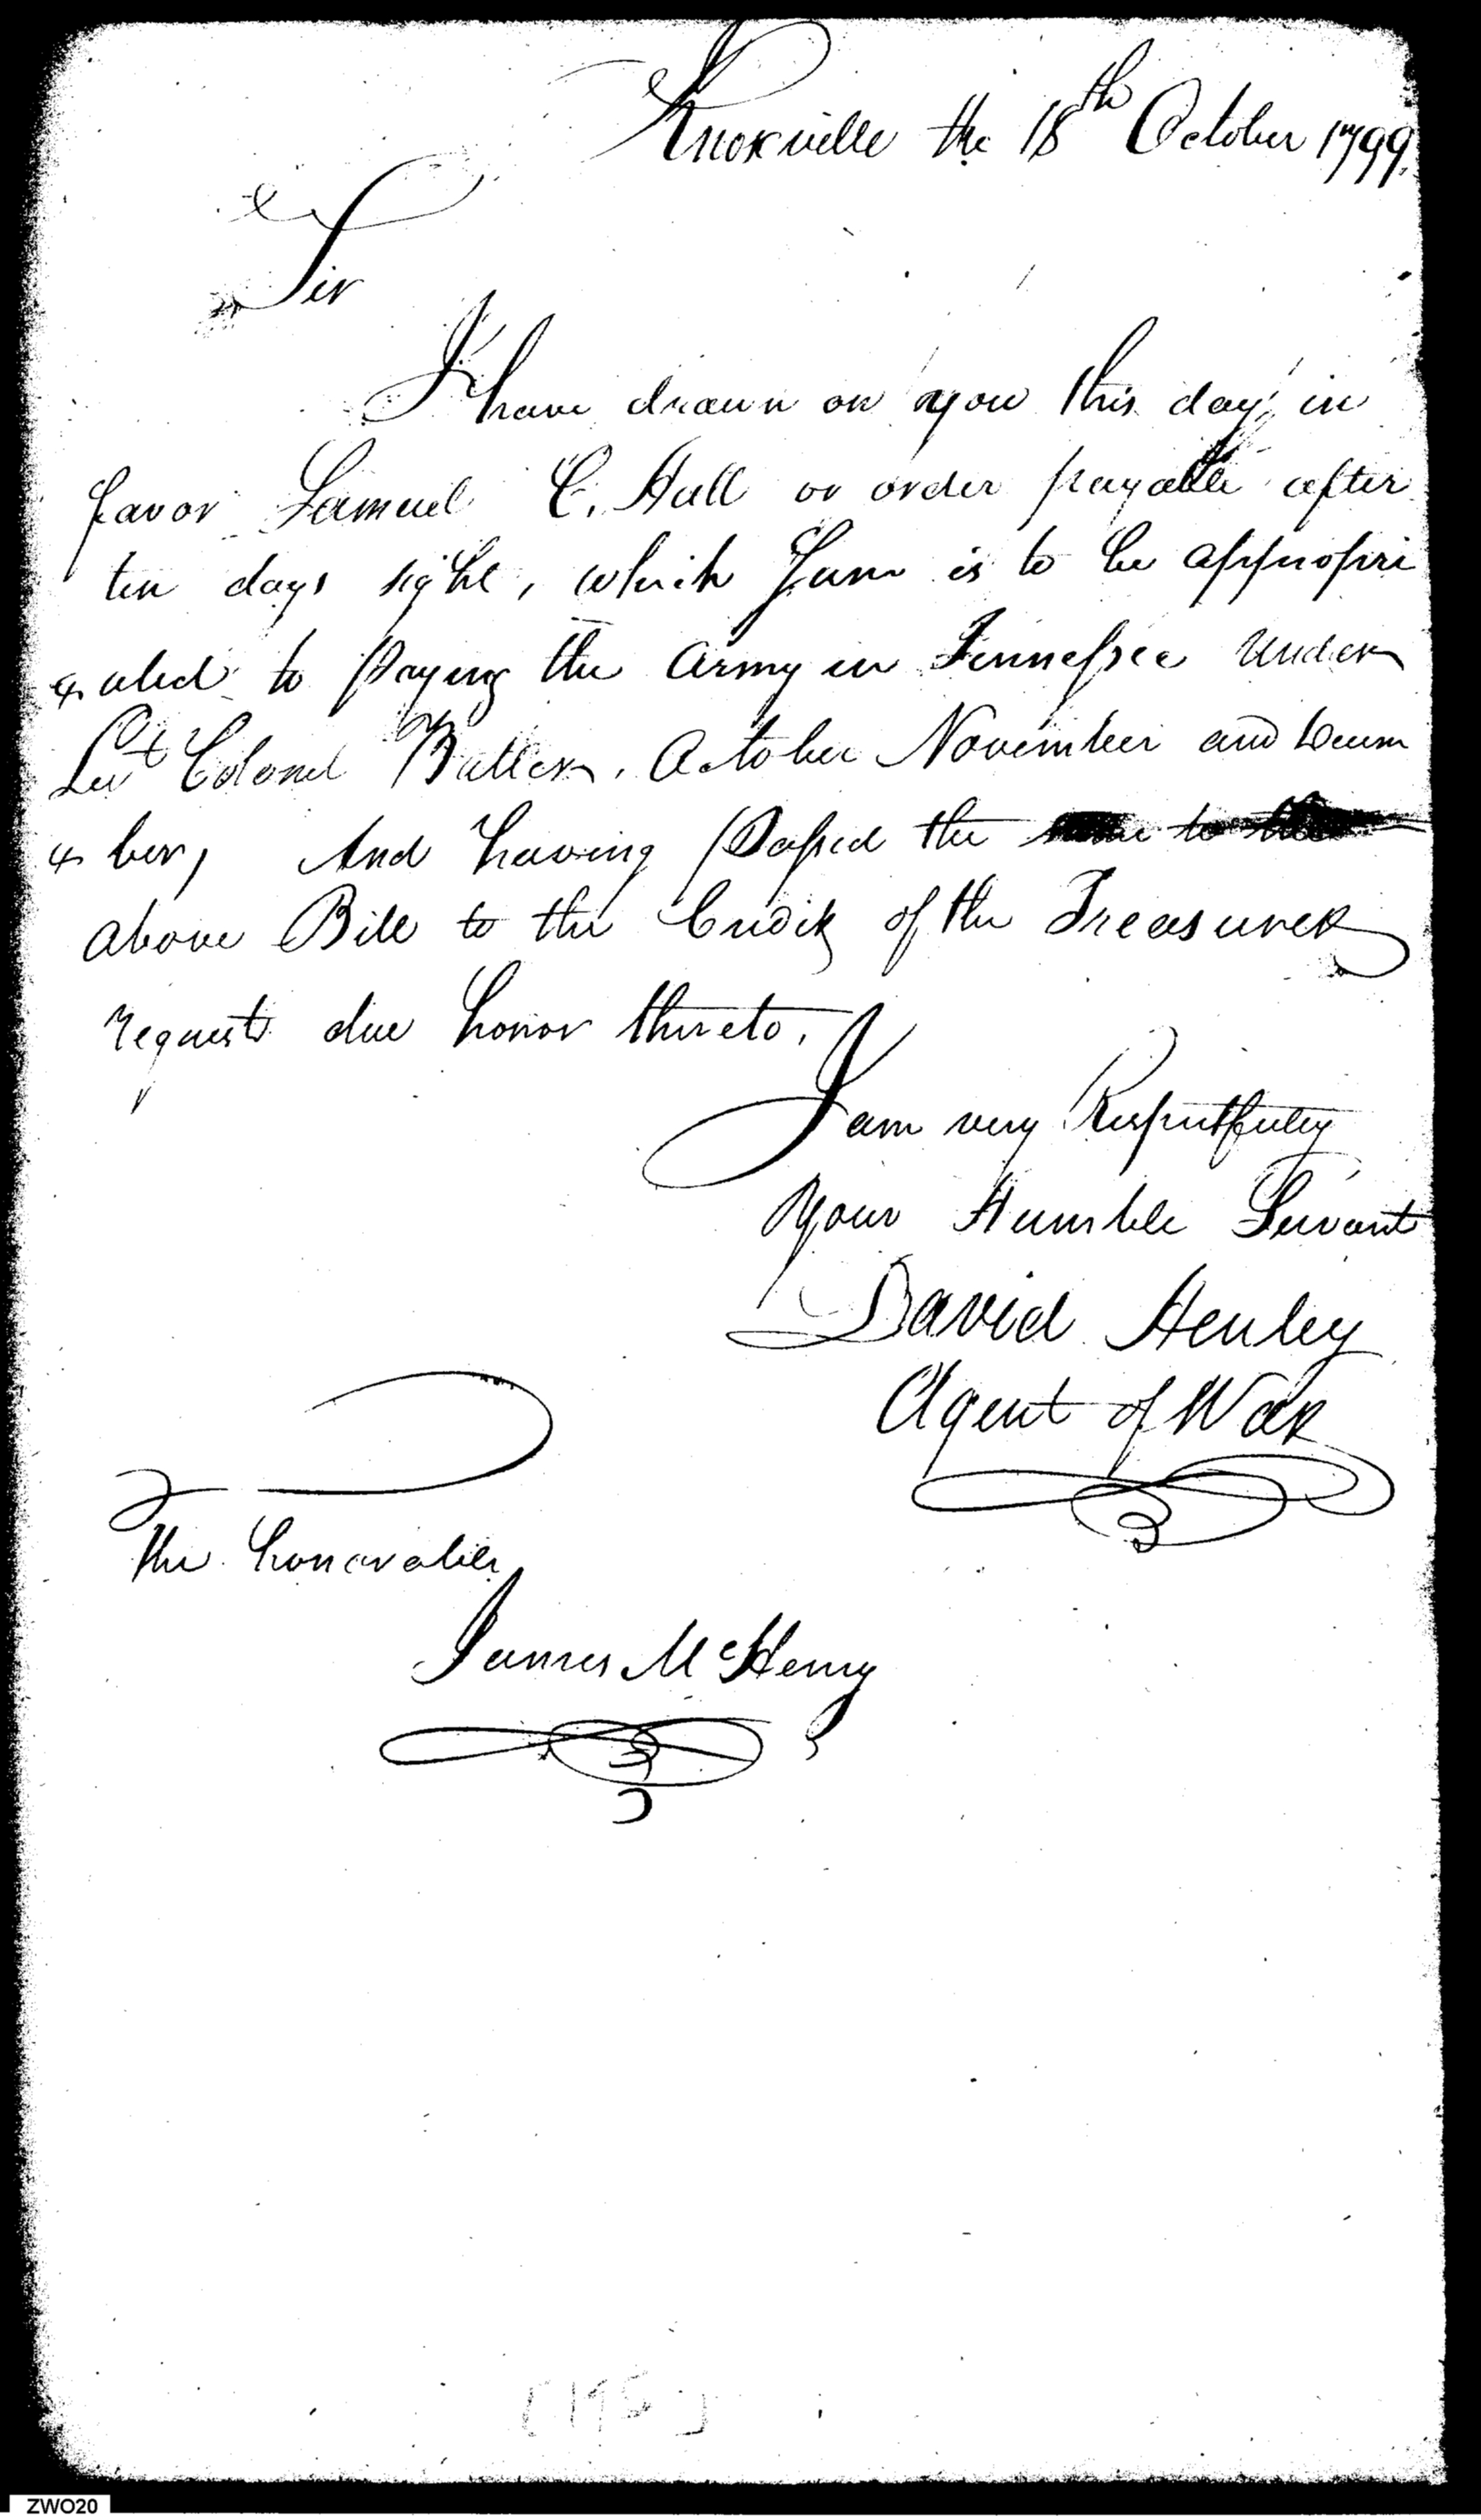 Knoxville the 18th October 1799.
Sir
I have drawn on you this day, in
favor Samuel C. Hall or order payable after
ten days sight, which Sum is to be appropri
ated to Paying the Army in Tennessee Under
Lieut Colonel Butler, October November and Decem
ber, And having Passed the
above Bill to the Credit of the Treasurer
request due honor thereto.
I am very Respectfully
Your Humble Servant
David Henley
Agent of War
The honorable
James McHenry
ZWO20